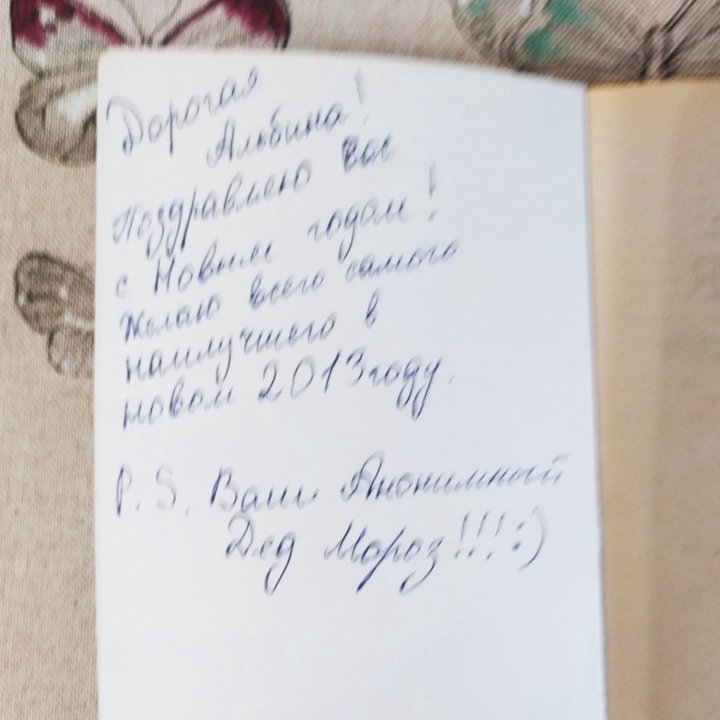 Дорогая
Альбина!
Поздравляю вас
с Новым годом!
Желаю всего самого
наилучшего в
новом 2013 году.
P.S. Ваш Анонимный
Дед Мороз!!! :)